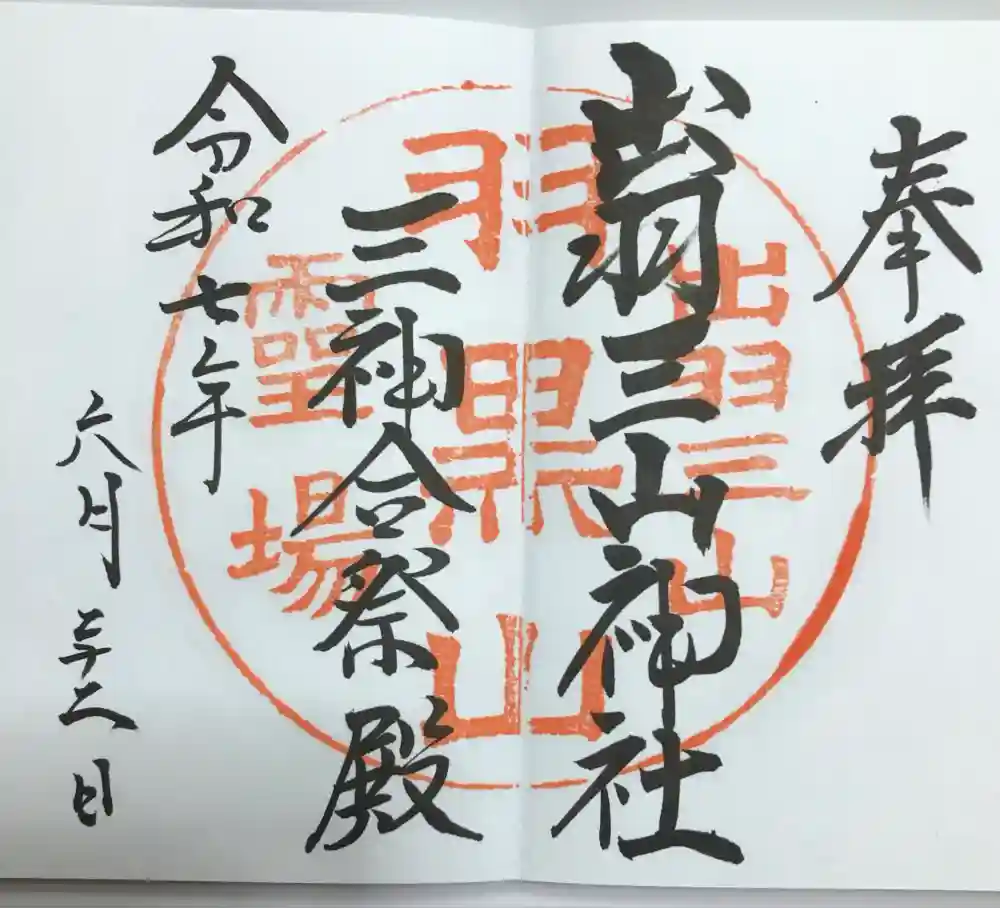 奉拝
出羽三山神社
三神合祭殿
令和七年
六月二十二日
出羽三山
羽黒山
霊場